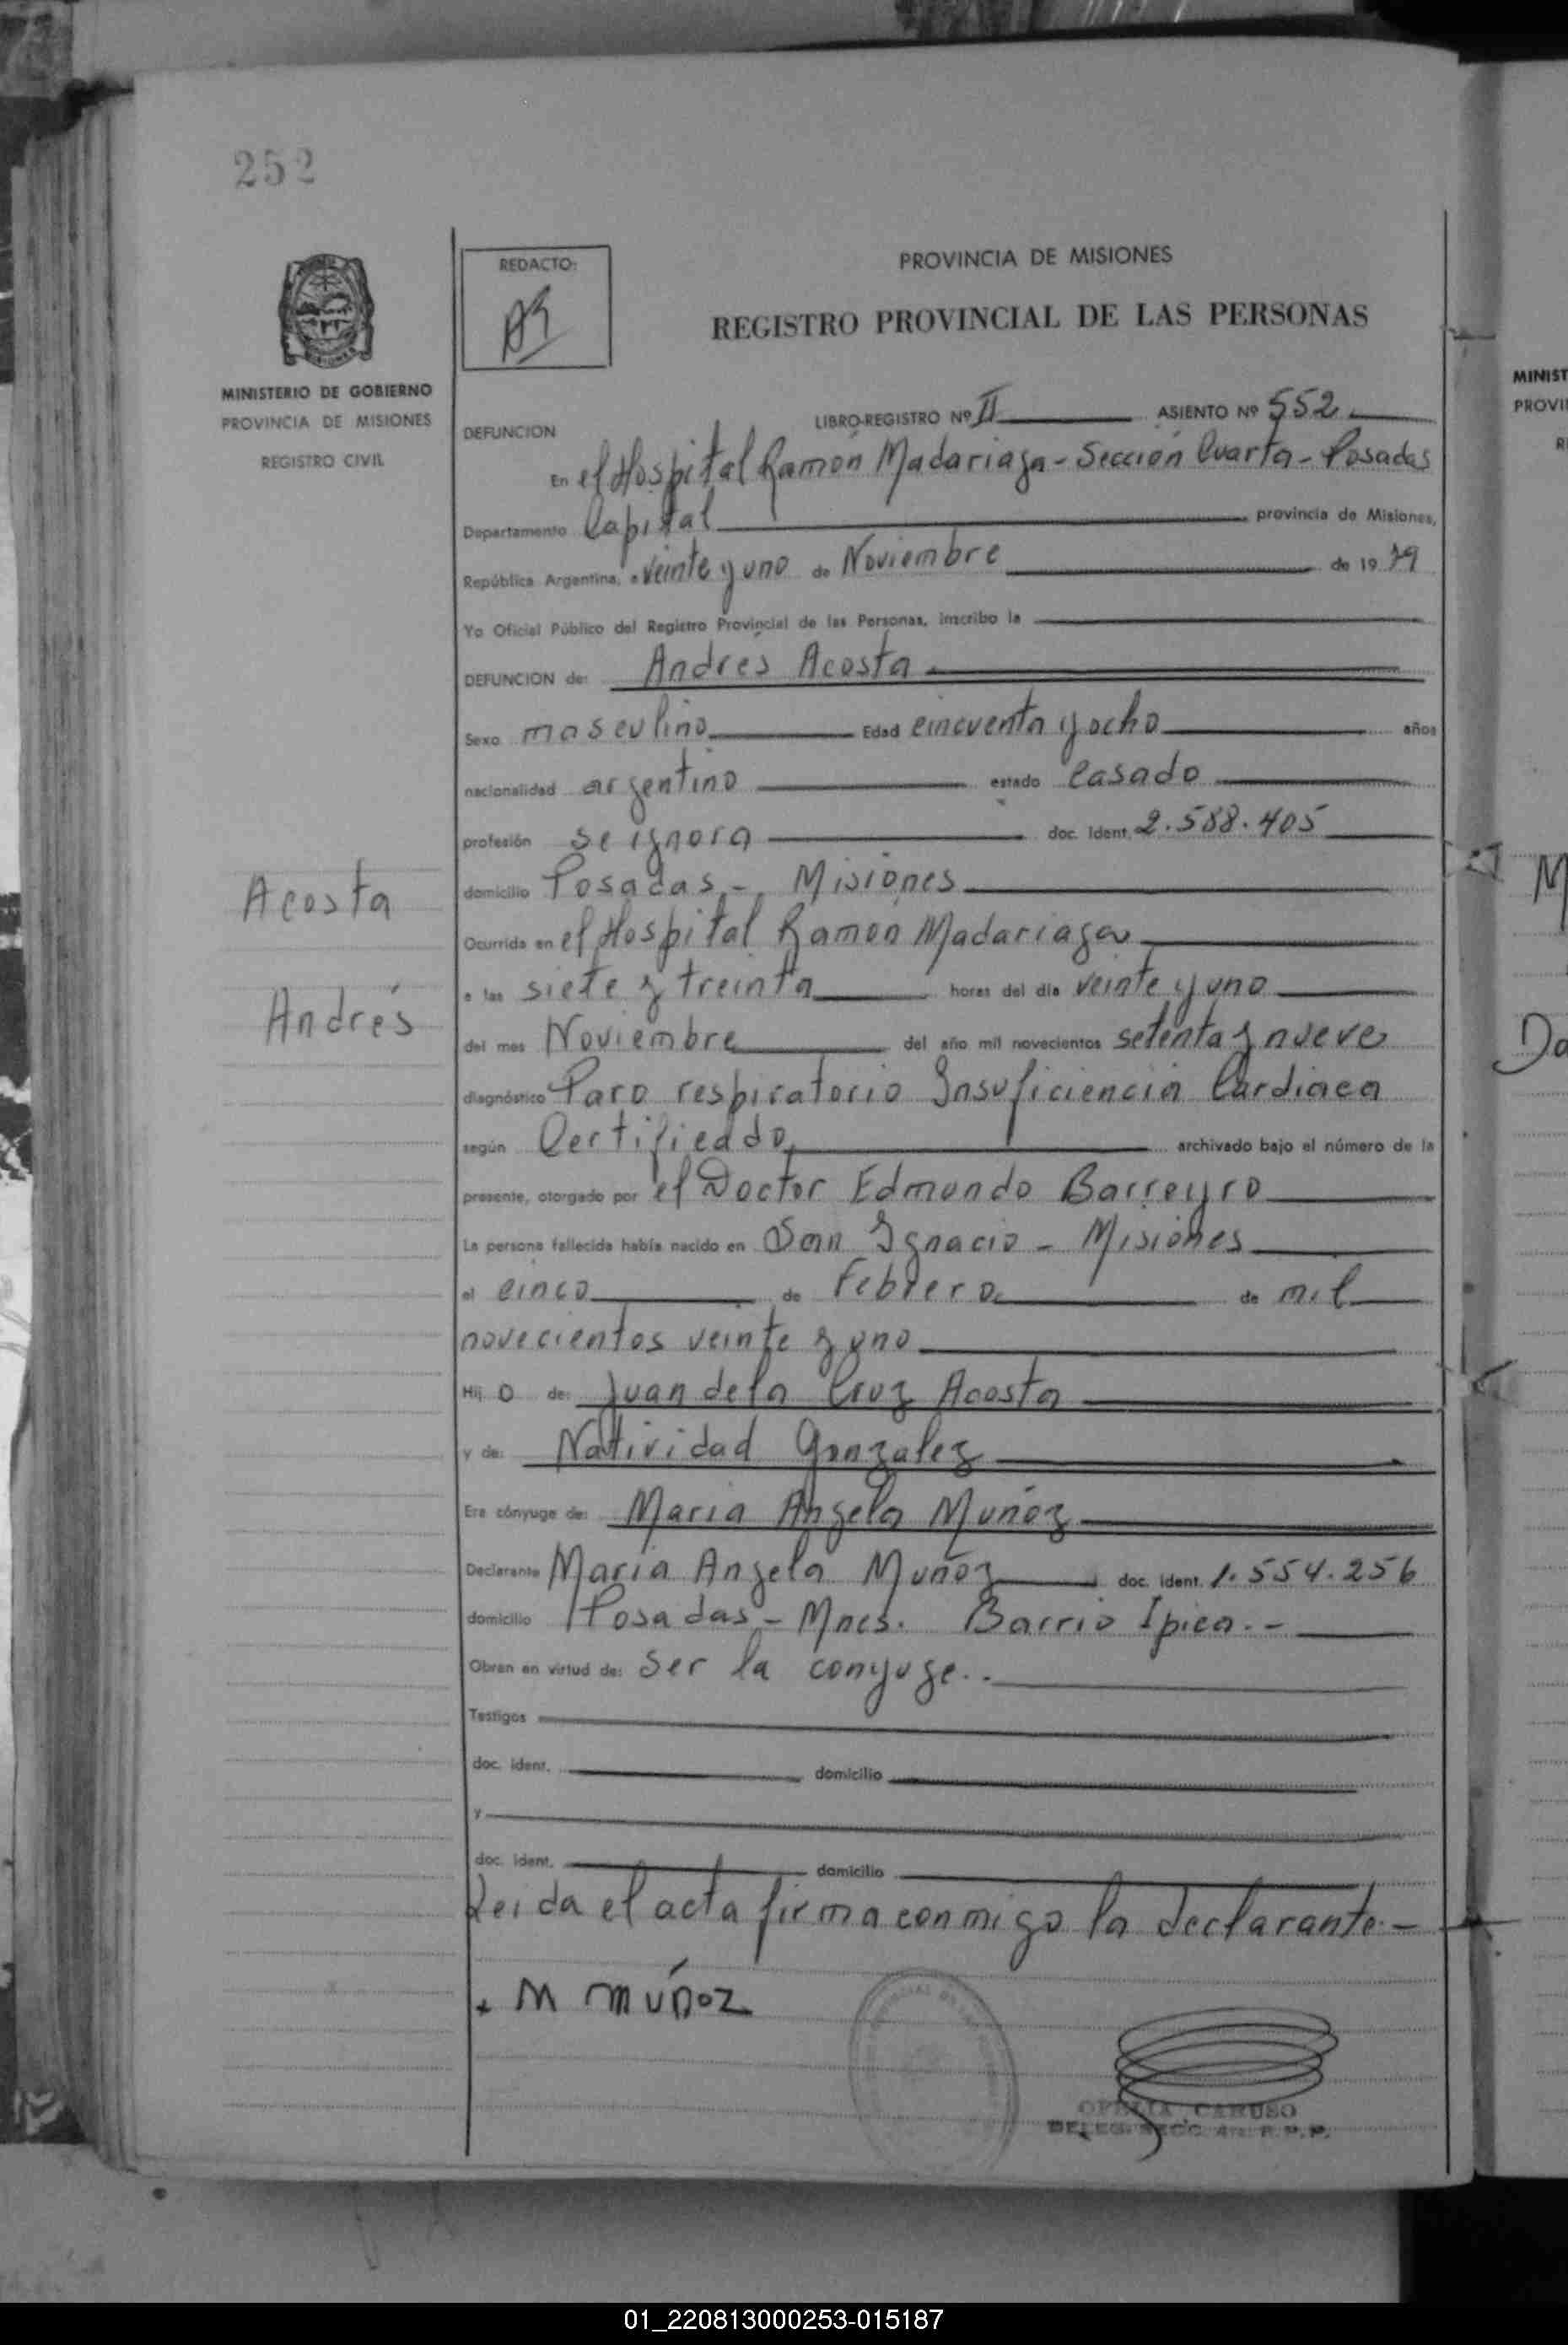 252
REDACTO:
PROVINCIA DE MISIONES
REGISTRO PROVINCIAL DE LAS PERSONAS
MINISTERIO DE GOBIERNO
PROVINCIA DE MISIONES
REGISTRO CIVIL
DEFUNCION
LIBRO-REGISTRO Nº II ASIENTO Nº 552
En el Hospital Ramón Madariaga - Sección Cuarta - Posadas
Departamento Capital provincia de Misiones,
República Argentina, a veinte y uno de Noviembre de 1979
Yo Oficial Público del Registro Provincial de las Personas, inscribo la
DEFUNCION de: Andrés Acosta
Sexo masculino Edad cincuenta y ocho años
nacionalidad argentino estado Casado
profesión se ignora doc. ident. 2.588.405
Acosta
domicilio Posadas - Misiones
Ocurrida en el Hospital Ramón Madariaga
a las siete y treinta horas del día veinte y uno
Andrés
del mes Noviembre del año mil novecientos setenta y nueve
diagnóstico Paro respiratorio Insuficiencia Cardiaca
según Certificado archivado bajo el número de la
presente, otorgado por el Doctor Edmundo Barreyro
La persona fallecida había nacido en San Ignacio - Misiones
el cinco de Febrero de mil
novecientos veinte y uno
Hij o de: Juan de la Cruz Acosta
y de: Natividad Gonzalez
Era cónyuge de: Maria Angela Muñoz
Declarante Maria Angela Muñoz doc. ident. 1.554.256
domicilio Posadas - Mnes. Barrio Ipica.-
Obran en virtud de: Ser la conyuge..
Testigos
doc. ident. domicilio
y
doc. ident. domicilio
Leida el acta firma conmigo la declarante.-
+ M MÚÑOZ
OFELIA CARUSO
DELEG. SECC. 4ta R.P.P.
MINIST
PROVI
R
M
Da
01_220813000253-015187